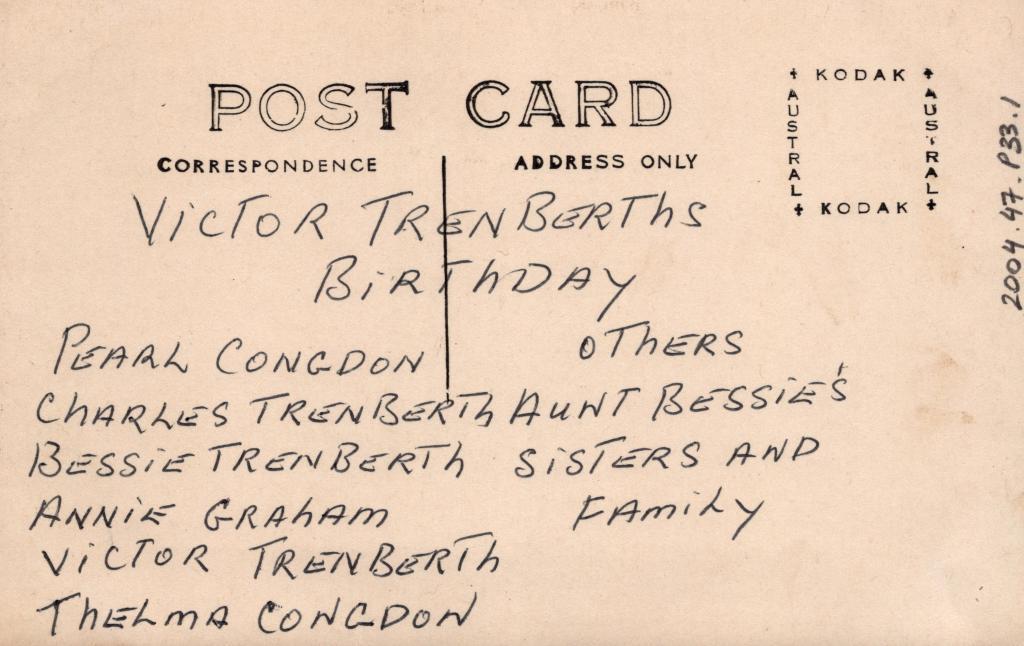 POST CARD
CORRESPONDENCE
ADDRESS ONLY
KODAK
AUSTRAL
AUSTRAL
KODAK
2004.47.P33.1
VICTOR TRENBERThS
BIRThDAY
PEARL CONGDON
CHARLES TRENBERTh
BESSIE TRENBERTh
ANNIE GRAhAM
VICTOR TRENBERTh
ThELMA CONGDON
OThERS
AUNT BESSIE'S
SISTERS AND
FAMILY